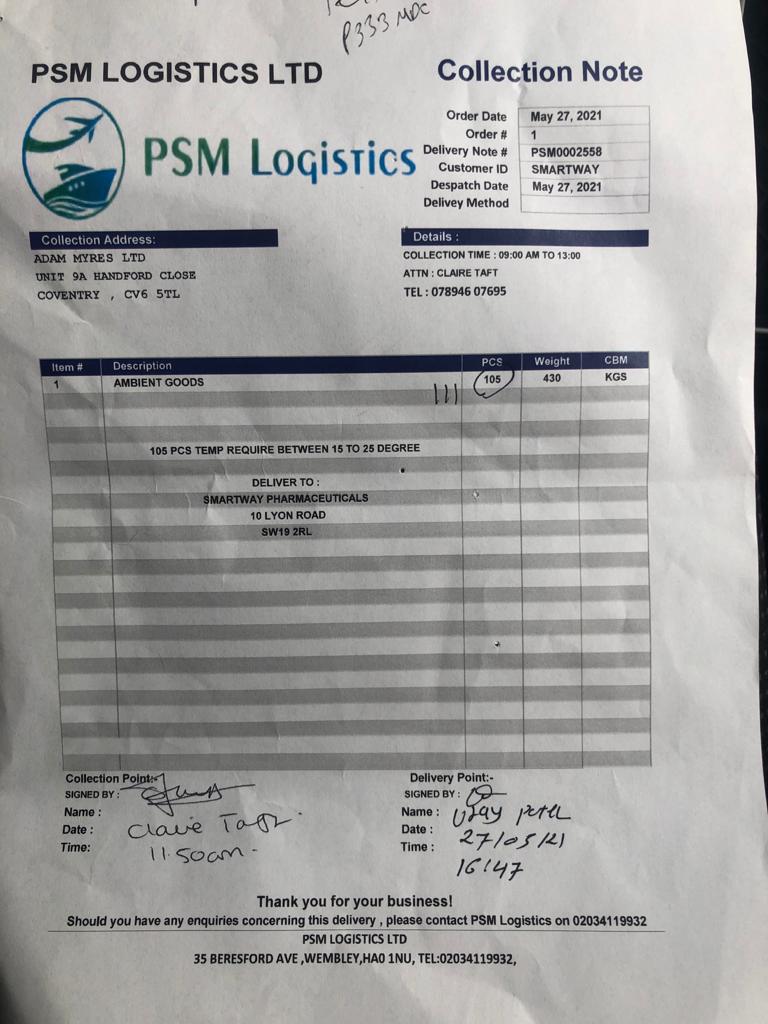 P333 MDC
PSM LOGISTICS LTD
Collection Note
PSM Logistics
Order Date May 27, 2021
Order # 1
Delivery Note # PSM0002558
Customer ID SMARTWAY
Despatch Date May 27, 2021
Delivey Method
Collection Address:
ADAM MYRES LTD
UNIT 9A HANDFORD CLOSE
COVENTRY , CV6 5TL
Details :
COLLECTION TIME : 09:00 AM TO 13:00
ATTN : CLAIRE TAFT
TEL : 078946 07695
Item # Description PCS Weight CBM
1 AMBIENT GOODS 105 430 KGS
105 PCS TEMP REQUIRE BETWEEN 15 TO 25 DEGREE
DELIVER TO :
SMARTWAY PHARMACEUTICALS
10 LYON ROAD
SW19 2RL
Collection Point:-
SIGNED BY :
Name :
Date : Claire Taft
Time: 11.50am.
Delivery Point:-
SIGNED BY :
Name : Uday
Date : 27/05/21
Time : 16:47
Thank you for your business!
Should you have any enquiries concerning this delivery , please contact PSM Logistics on 02034119932
PSM LOGISTICS LTD
35 BERESFORD AVE ,WEMBLEY,HA0 1NU, TEL:02034119932,